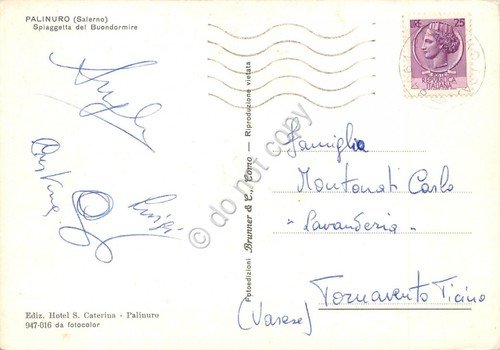 PALINURO (Salerno)
Spiaggetta del Buondormire
LIRE 25
REPUBBLICA
ITALIANA
Fotoedizioni Brunner & C., Como - Riproduzione vietata
© do not copy
Famiglia
Montonati Carlo
- Lavanderia -
Tornavento Ticino
(Varese)
Cristina
Luigi
Ediz. Hotel S. Caterina - Palinuro
947-016 da fotocolor